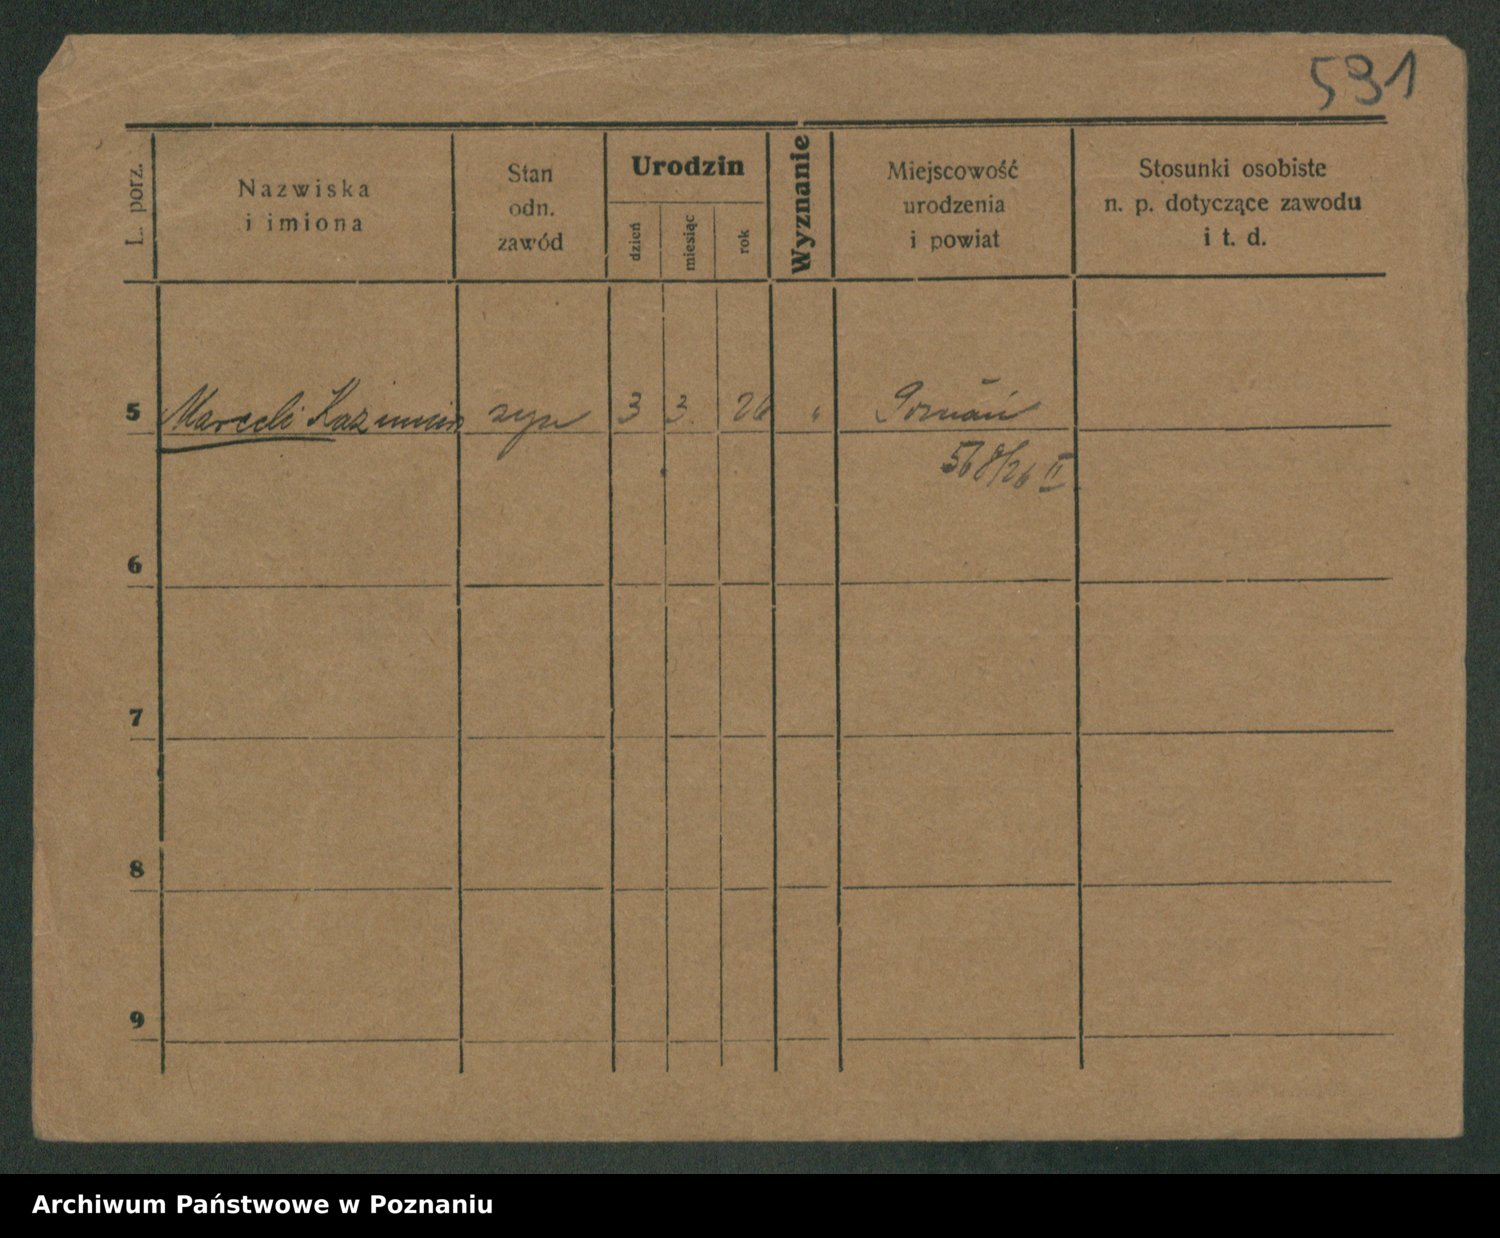 531
L. porz.
Nazwiska
i imiona
Stan
odn.
zawód
Urodzin
dzień
miesiąc
rok
Wyznanie
Miejscowość
urodzenia
i powiat
Stosunki osobiste
n. p. dotyczące zawodu
i t. d.
5 Marceli Kazimierz syn 3 3. 26 " Poznań
568/26 II
6
7
8
9
Archiwum Państwowe w Poznaniu